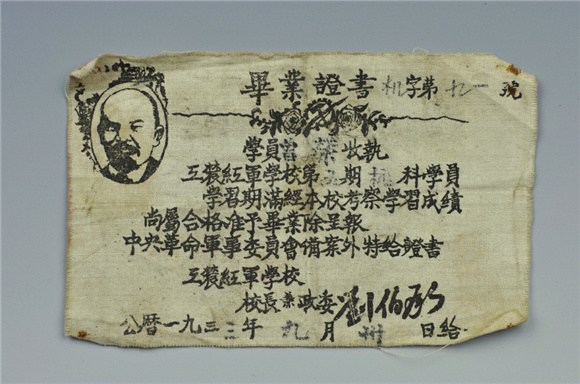 畢業證書 机字第九一號
學員曾 收執
工農紅軍學校第五期机科學員
學習期滿經本校考察學習成績
尚屬合格准予畢業除呈報
中央革命軍事委員會備案外特給證書
工農紅軍學校
校長兼政委劉伯承
公曆一九三三年九月卅日給